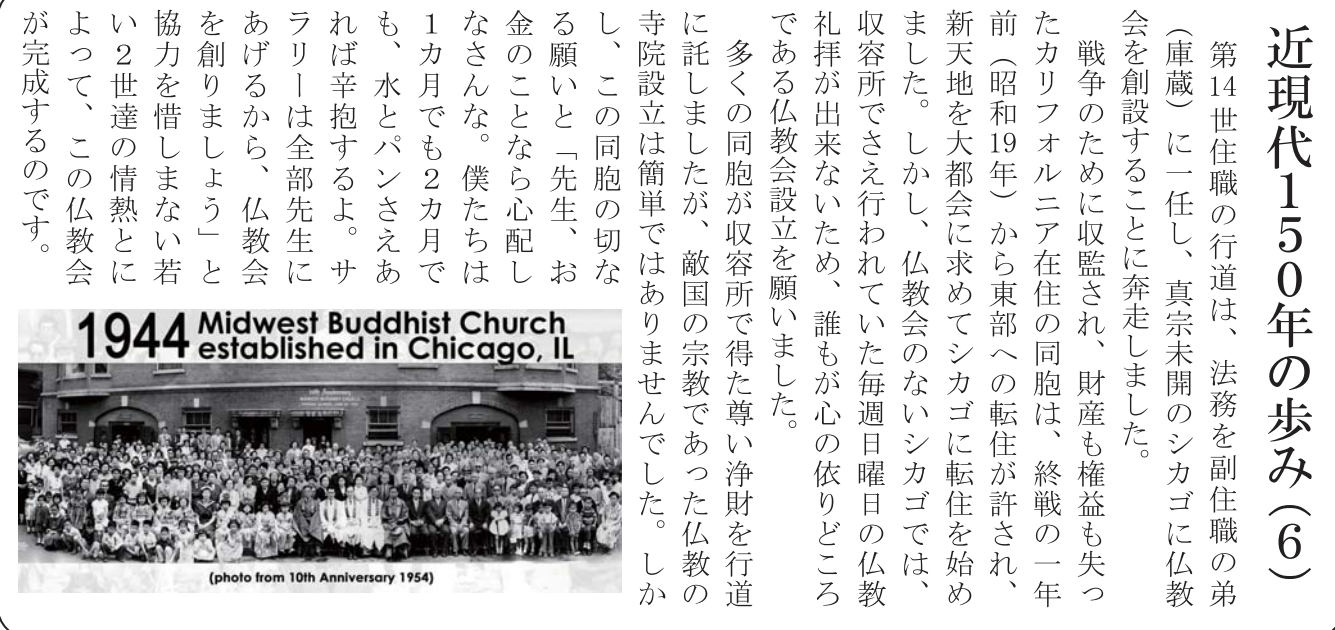 近現代150年の歩み（6）
第14世住職の行道は、法務を副住職の弟
（庫蔵）に一任し、真宗未開のシカゴに仏教
会を創設することに奔走しました。
戦争のために収監され、財産も権益も失っ
たカリフォルニア在住の同胞は、終戦の一年
前（昭和19年）から東部への転住が許され、
新天地を大都会に求めてシカゴに転住を始め
ました。しかし、仏教会のないシカゴでは、
収容所でさえ行われていた毎週日曜日の仏教
礼拝が出来ないため、誰もが心の依りどころ
である仏教会設立を願いました。
多くの同胞が収容所で得た尊い浄財を行道
に託しましたが、敵国の宗教であった仏教の
寺院設立は簡単ではありませんでした。しか
し、この同胞の切な
る願いと「先生、お
金のことなら心配し
なさんな。僕たちは
1カ月でも2カ月で
も、水とパンさえあ
れば辛抱するよ。サ
ラリーは全部先生に
あげるから、仏教会
を創りましょう」と
協力を惜しまない若
い2世達の情熱とに
よって、この仏教会
が完成するのです。
1944 Midwest Buddhist Church
established in Chicago, IL
(photo from 10th Anniversary 1954)